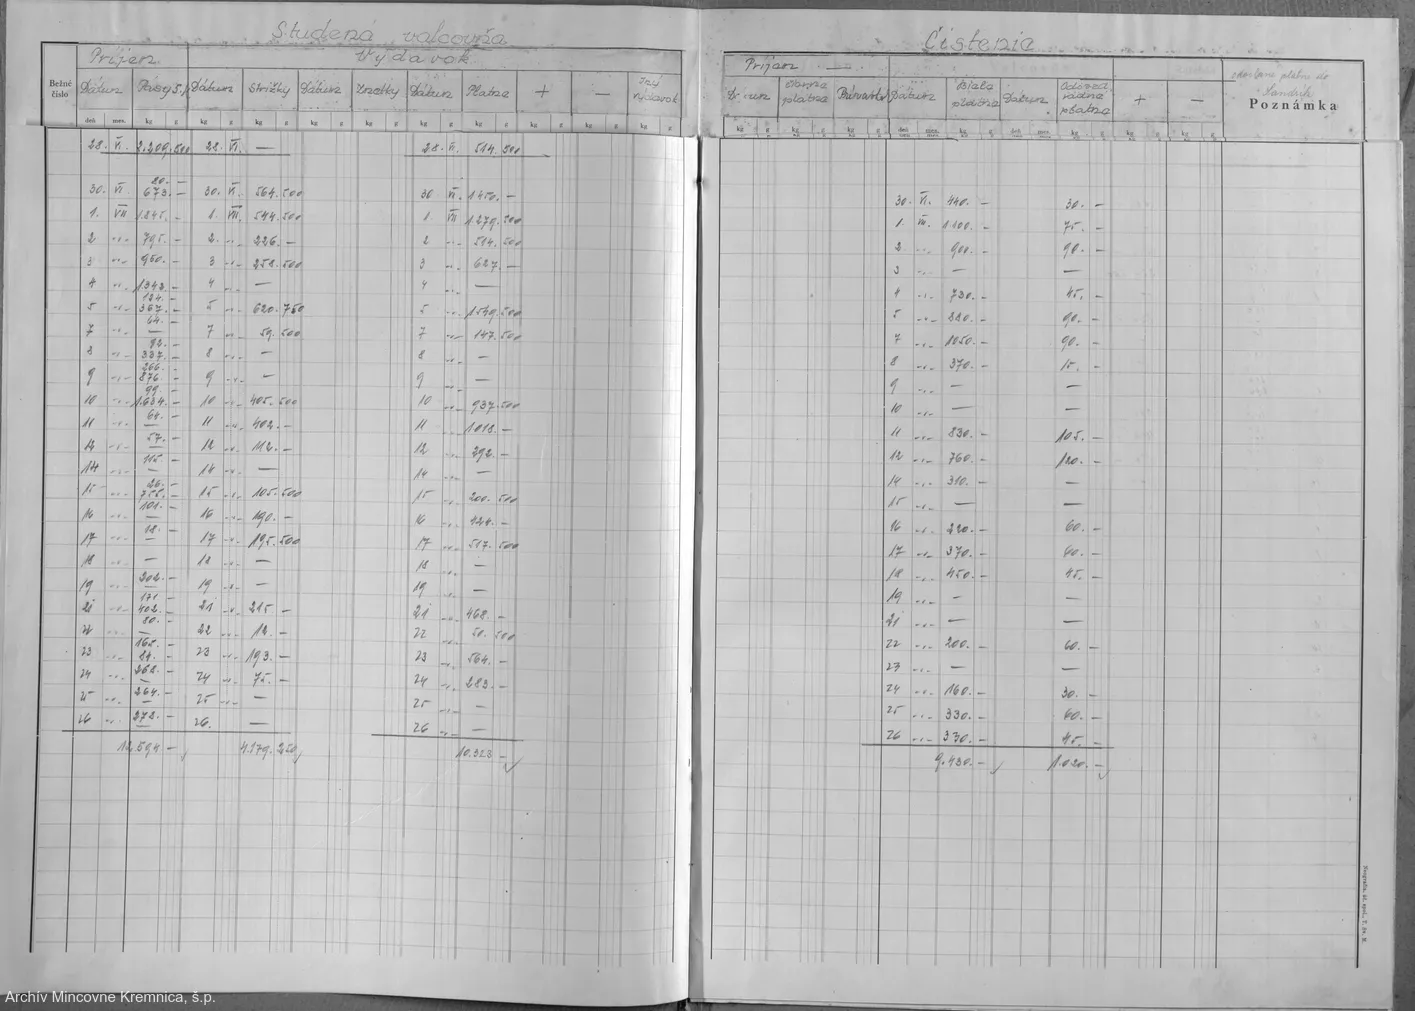 Studená valcovňa
Príjem
Výdavok
Bežné číslo
Dátum
Pásy
Dátum
Strižky
Dátum
Zmetky
Dátum
Platne
+
—
Iný výdavok
deň mes. kg g kg g kg g kg g kg g kg g kg g kg g kg g kg g
28. VI. 2.209.500 28. VI. — 28. VI. 514.500
20.—
30. VI 673.— 30. VI. 564.500 30 VI. 1450.—
1. VII 1.245.— 1. VII. 544.500 1. VII 1.279.500
2 -"- 795.— 2. -"- 226.— 2 -"- 514.500
3 -"- 950.— 3 -"- 258.500 3 -"- 627.—
4 -"- 1.343.— 4 -"- — 4 -"- —
124.—
5 -"- 367.— 5 -"- 620.750 5 -"- 1549.500
64.—
7 -"- — 7 -"- 59.500 7 -"- 147.500
92.—
8 -"- 337.— 8 -"- — 8 -"- —
266.—
9 -"- 876.— 9 -"- — 9 -"- —
99.—
10 -"- 1.634.— 10 -"- 405.500 10 -"- 937.500
64.—
11 -"- — 11 -"- 402.— 11 -"- 1018.—
57.—
12 -"- — 12 -"- 112.— 12 -"- 292.—
115.—
14 -"- — 14 -"- — 14 -"- —
26.—
15 -"- 755.— 15 -"- 105.500 15 -"- 200.500
101.—
16 -"- — 16 -"- 190.— 16 -"- 424.—
18.—
17 -"- — 17 -"- 195.500 17 -"- 517.500
18 -"- — 18 -"- — 18 -"- —
202.—
19 -"- — 19 -"- — 19 -"- —
171.—
21 -"- 402.— 21 -"- 215.— 21 -"- 468.—
80.—
22 -"- — 22 -"- 12.— 22 -"- 50.500
165.—
23 -"- 84.— 23 -"- 193.— 23 -"- 564.—
262.—
24 -"- — 24 -"- 75.— 24 -"- 283.—
264.—
25 -"- — 25 -"- — 25 -"- —
272.—
26 -"- — 26. — 26 -"- —
12.594.— 4.179.250 10.323.—
Čistenie
Príjem —
Dátum
Čierne platne
Dátum
Biele platne
Dátum
+
—
Poznámka
kg g kg g kg g deň mes. kg g deň mes. kg g kg g kg g
30. VI. 440.— 30.—
1. VII. 1.100.— 75.—
2 -"- 900.— 90.—
3 -"- — —
4 -"- 730.— 45.—
5 -"- 880.— 90.—
7 -"- 1050.— 90.—
8 -"- 370.— 15.—
9 -"- — —
10 -"- — —
11 -"- 830.— 105.—
12 -"- 760.— 120.—
14 -"- 310.— —
15 -"- — —
16 -"- 220.— 60.—
17 -"- 370.— 60.—
18 -"- 450.— 45.—
19 -"- — —
21 -"- — —
22 -"- 200.— 60.—
23 -"- — —
24 -"- 160.— 30.—
25 -"- 330.— 60.—
26 -"- 330.— 45.—
9.430.— 1.020.—
Neografia, úč. spol., T. Sv. M.
Archív Mincovne Kremnica, š.p.